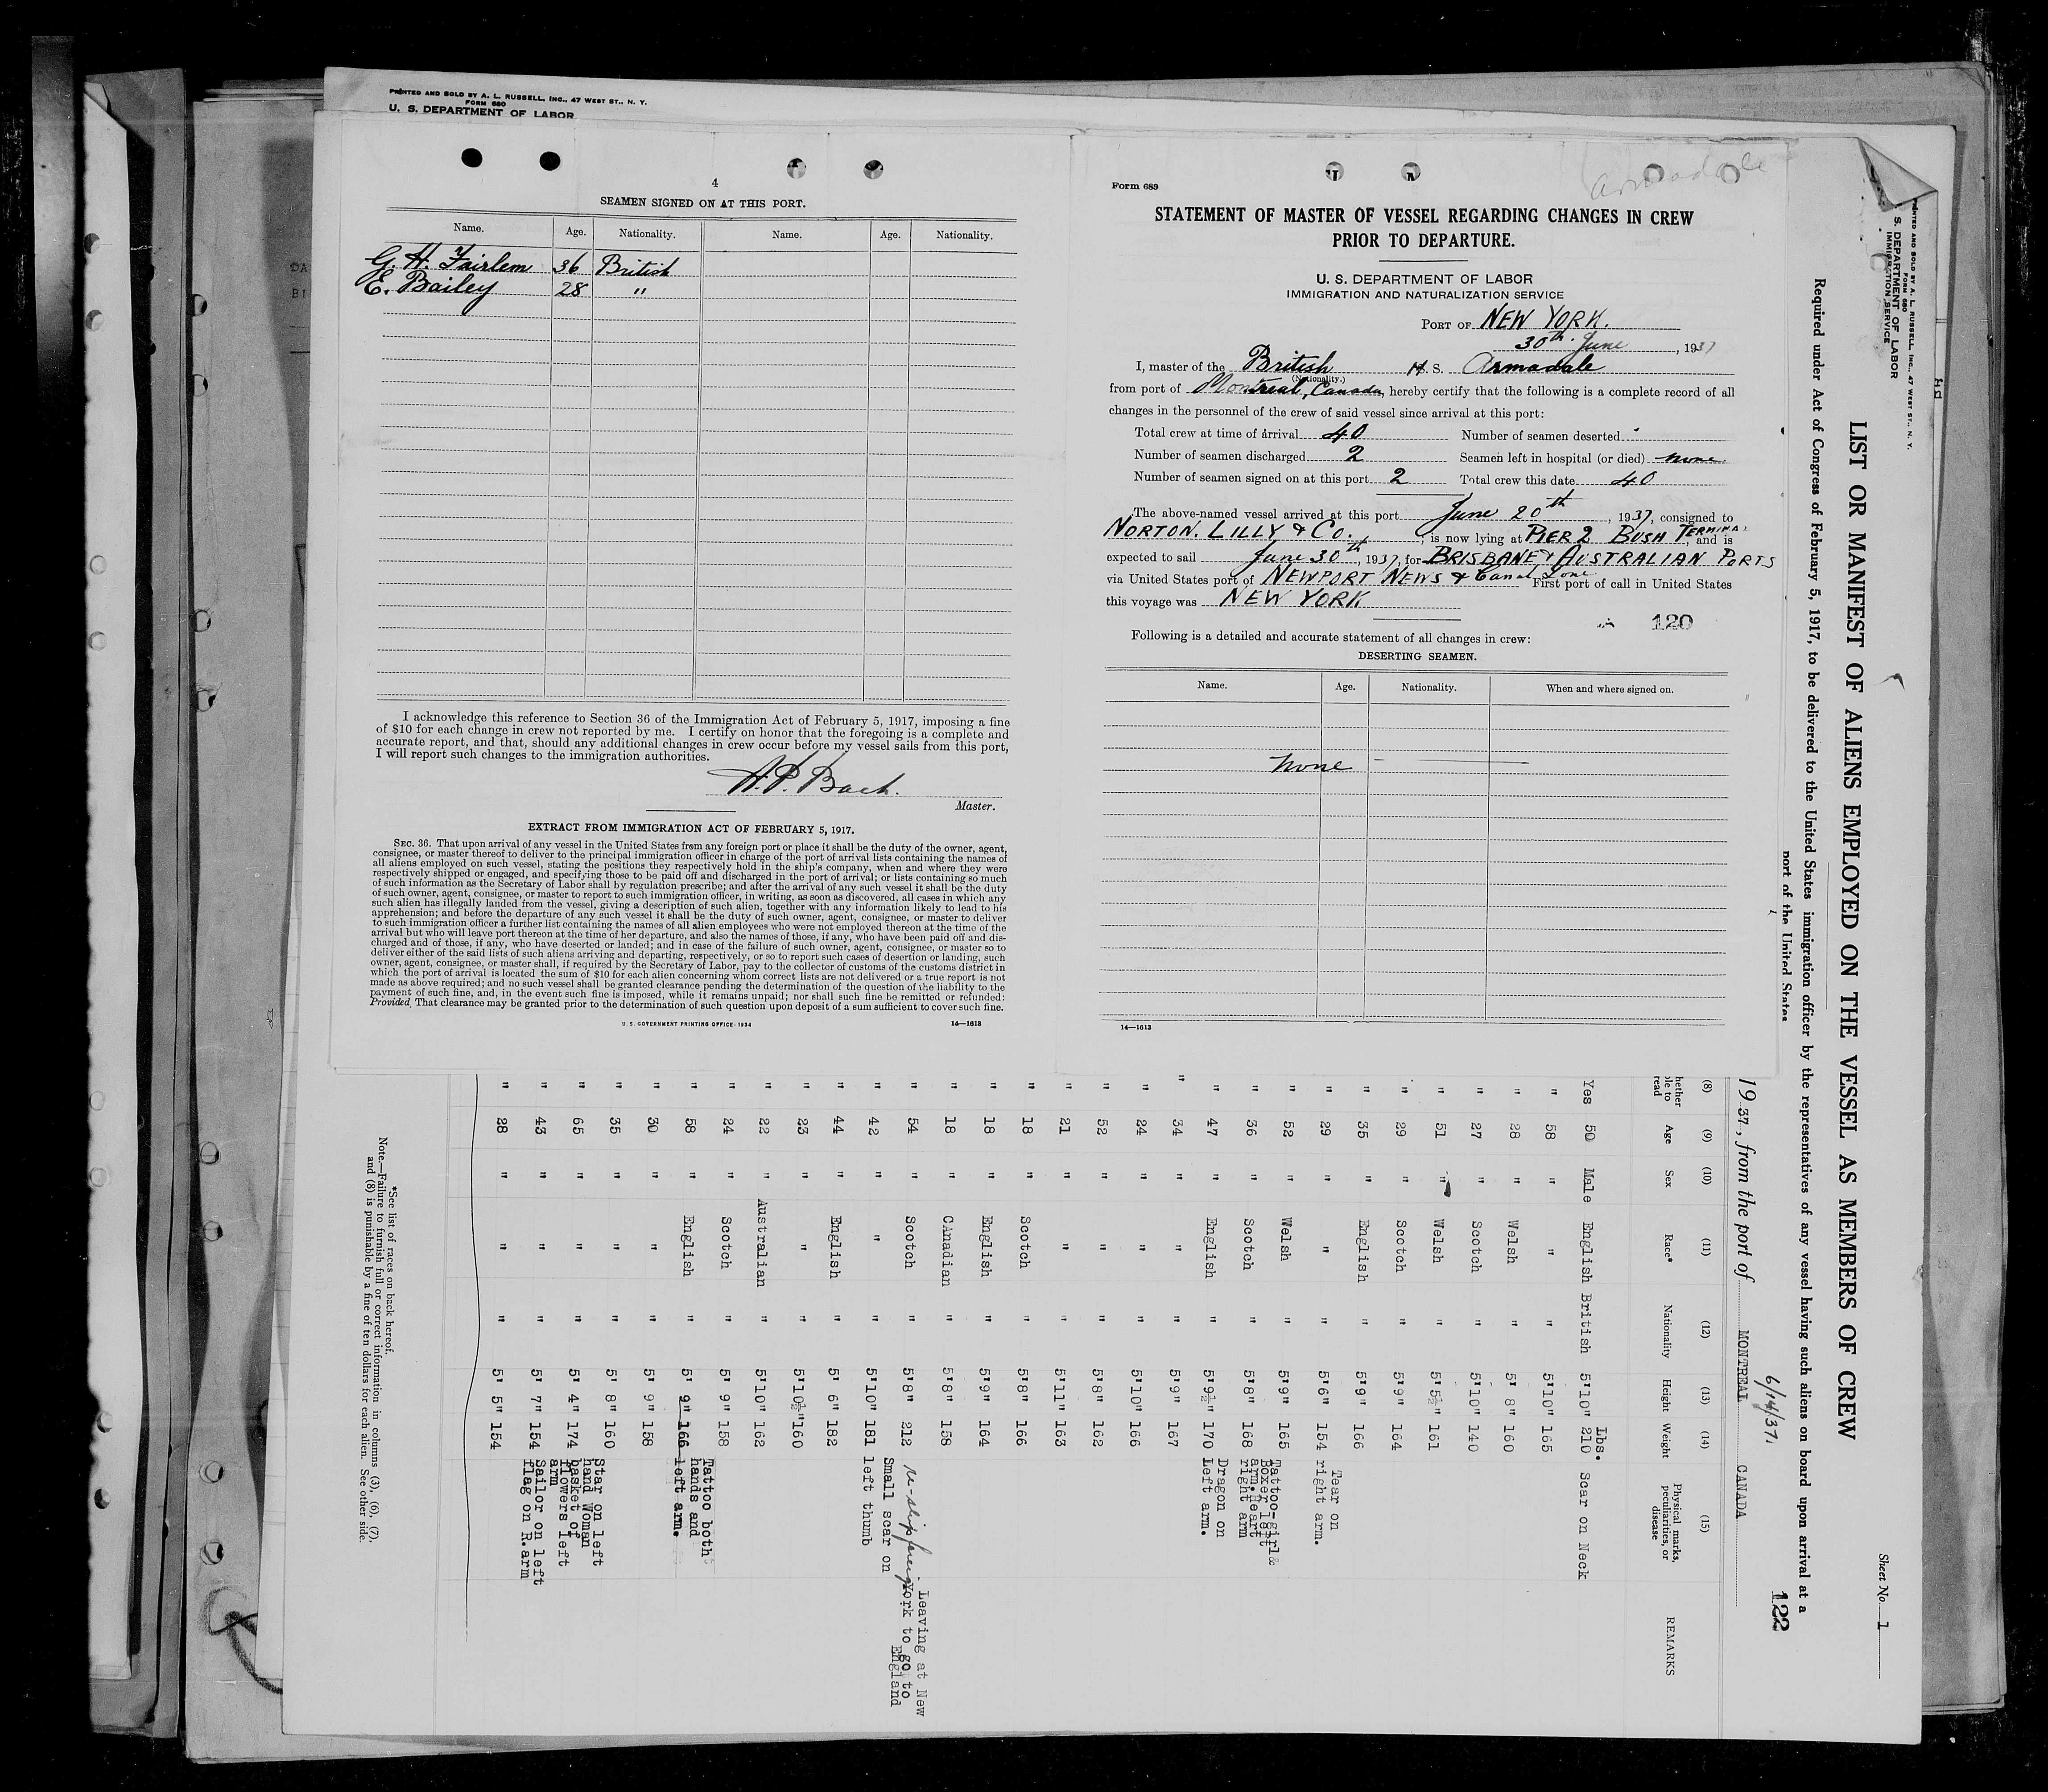 PRINTED AND SOLD BY A. L. RUSSELL, INC., 47 WEST ST., N. Y.
FORM 680
U. S. DEPARTMENT OF LABOR
4
SEAMEN SIGNED ON AT THIS PORT.
Name. Age. Nationality. Name. Age. Nationality.
G. H. Fairlem 36 British
E. Bailey 28 "
I acknowledge this reference to Section 36 of the Immigration Act of February 5, 1917, imposing a fine
of $10 for each change in crew not reported by me. I certify on honor that the foregoing is a complete and
accurate report, and that, should any additional changes in crew occur before my vessel sails from this port,
I will report such changes to the immigration authorities.
Master.
EXTRACT FROM IMMIGRATION ACT OF FEBRUARY 5, 1917.
SEC. 36. That upon arrival of any vessel in the United States from any foreign port or place it shall be the duty of the owner, agent,
consignee, or master thereof to deliver to the principal immigration officer in charge of the port of arrival lists containing the names of
all aliens employed on such vessel, stating the positions they respectively hold in the ship's company, when and where they were
respectively shipped or engaged, and specifying those to be paid off and discharged in the port of arrival; or lists containing so much
of such information as the Secretary of Labor shall by regulation prescribe; and after the arrival of any such vessel it shall be the duty
of such owner, agent, consignee, or master to report to such immigration officer, in writing, as soon as discovered, all cases in which any
such alien has illegally landed from the vessel, giving a description of such alien, together with any information likely to lead to his
apprehension; and before the departure of any such vessel it shall be the duty of such owner, agent, consignee, or master to deliver
to such immigration officer a further list containing the names of all alien employees who were not employed thereon at the time of the
arrival but who will leave port thereon at the time of her departure, and also the names of those, if any, who have been paid off and dis-
charged and of those, if any, who have deserted or landed; and in case of the failure of such owner, agent, consignee, or master so to
deliver either of the said lists of such aliens arriving and departing, respectively, or so to report such cases of desertion or landing, such
owner, agent, consignee, or master shall, if required by the Secretary of Labor, pay to the collector of customs of the customs district in
which the port of arrival is located the sum of $10 for each alien concerning whom correct lists are not delivered or a true report is not
made as above required; and no such vessel shall be granted clearance pending the determination of the question of the liability to the
payment of such fine, and, in the event such fine is imposed, while it remains unpaid; nor shall such fine be remitted or refunded:
Provided, That clearance may be granted prior to the determination of such question upon deposit of a sum sufficient to cover such fine.
U. S. GOVERNMENT PRINTING OFFICE: 1934 14—1613
Armadale
Form 689
STATEMENT OF MASTER OF VESSEL REGARDING CHANGES IN CREW
PRIOR TO DEPARTURE.
U. S. DEPARTMENT OF LABOR
IMMIGRATION AND NATURALIZATION SERVICE
PORT OF NEW YORK.
30th June, 1937
I, master of the British M. S. Armadale
(Nationality.)
from port of Montreal, Canada, hereby certify that the following is a complete record of all
changes in the personnel of the crew of said vessel since arrival at this port:
Total crew at time of arrival 40 Number of seamen deserted
Number of seamen discharged 2 Seamen left in hospital (or died) none
Number of seamen signed on at this port 2 Total crew this date 40
The above-named vessel arrived at this port June 20th, 1937, consigned to
NORTON. LILLY & CO., is now lying at PIER 2 BUSH TERMINAL, and is
expected to sail June 30th, 1937, for BRISBANE & AUSTRALIAN PORTS
via United States port of NEWPORT NEWS & Canal Zone First port of call in United States
this voyage was NEW YORK
120
Following is a detailed and accurate statement of all changes in crew:
DESERTING SEAMEN.
Name. Age. Nationality. When and where signed on.
none
14—1613
PRINTED AND SOLD BY A. L. RUSSELL, INC., 47 WEST ST., N. Y.
FORM 680
S. DEPARTMENT OF LABOR
IMMIGRATION SERVICE
Sheet No. 1
LIST OR MANIFEST OF ALIENS EMPLOYED ON THE VESSEL AS MEMBERS OF CREW
Required under Act of Congress of February 5, 1917, to be delivered to the United States immigration officer by the representatives of any vessel having such aliens on board upon arrival at a
port of the United States
122
6/14/37.
1937, from the port of MONTREAL CANADA
(8) (9) (10) (11) (12) (13) (14) (15)
hether
le to
read Age Sex Race* Nationality Height Weight Physical marks, peculiarities, or disease REMARKS
Lbs.
Yes 50 Male English British 5'10" 210 Scar on Neck
" 58 " " " 5'10" 165
" 28 " Welsh " 5' 8" 160
" 27 " Scotch " 5'10" 140
" 51 " Welsh " 5'5½" 161
" 29 " Scotch " 5'9" 164
" 35 " English " 5'9" 166
" 29 " " " 5'6" 154 Tear on right arm.
" 52 " Welsh " 5'9" 165 Tattoo-girl& Boxer left arm. Heart right arm
" 36 " Scotch " 5'8" 168
" 47 " English " 5'9½" 170 Dragon on Left arm.
" 34 " " " 5'9" 167
" 24 " " " 5'10" 166
" 52 " " " 5'8" 162
" 21 " " " 5'11" 163
" 18 " Scotch " 5'8" 166
" 18 " English " 5'9" 164
" 18 " Canadian " 5'8" 158
" 54 " Scotch " 5'8" 212 re-ship foreign Leaving at New York to go to England
" 42 " " " 5'10" 181 Small scar on left thumb
" 44 " English " 5' 6" 182
" 23 " " " 5'10½" 160
" 22 " Australian " 5'10" 162
" 24 " Scotch " 5' 9" 158
" 58 " English " 5' 9" 166 Tattoo both hands and left arm.
" 30 " " " 5' 9" 158
" 35 " " " 5' 8" 160
" 65 " " " 5' 4" 174 Star on left hand Woman basket of flowers left arm
" 43 " " " 5' 7" 154 Sailor on left flag on R. arm
" 28 " " " 5' 5" 154
*See list of races on back hereof.
Note.—Failure to furnish full or correct information in columns (3), (6), (7),
and (8) is punishable by a fine of ten dollars for each alien. See other side.